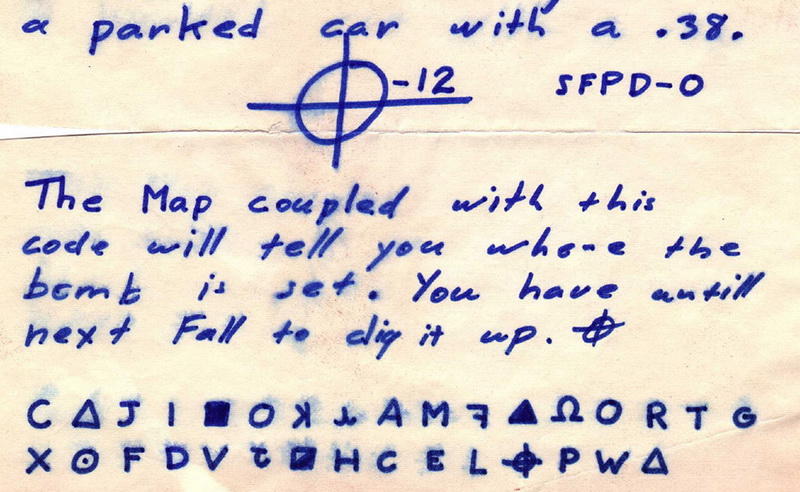 a parked car with a .38.
-12 SFPD-0
The Map coupled with this
code will tell you whone the
bomb is set. You have untill
next Fall to dig it up. ⌖
C Δ J I ■ O ꓘ ⅄ A M ꟻ ▲ Ω O R T G
X ⊙ F D V ꞇ ◪ H C E L ⌖ P W Δ